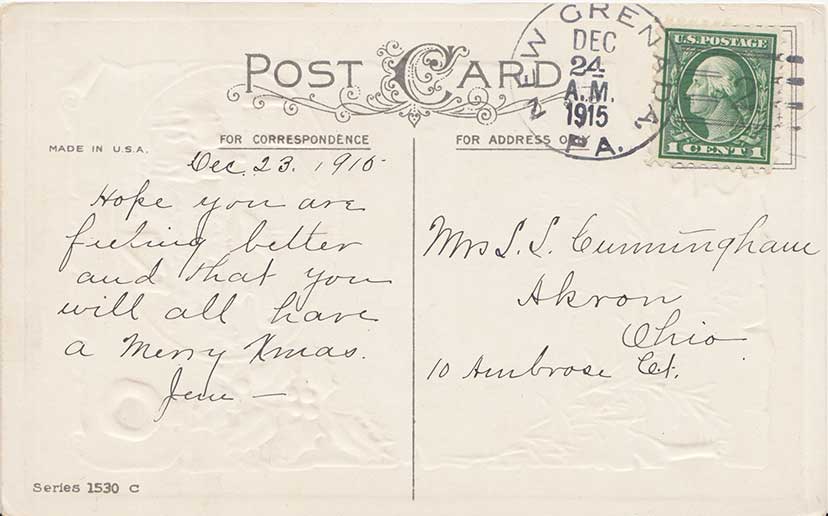 POST CARD
NEW GRENADA,
DEC
24
A.M.
1915
PA.
U.S. POSTAGE
1 CENT 1
MADE IN U.S.A.
FOR CORRESPONDENCE
Dec. 23. 1915
Hope you are
feeling better
and that you
will all have
a Merry Xmas.
FOR ADDRESS ONLY
Mrs S. S. Cunningham
Akron
Ohio
10 Ambrose Ct.
Series 1530 C